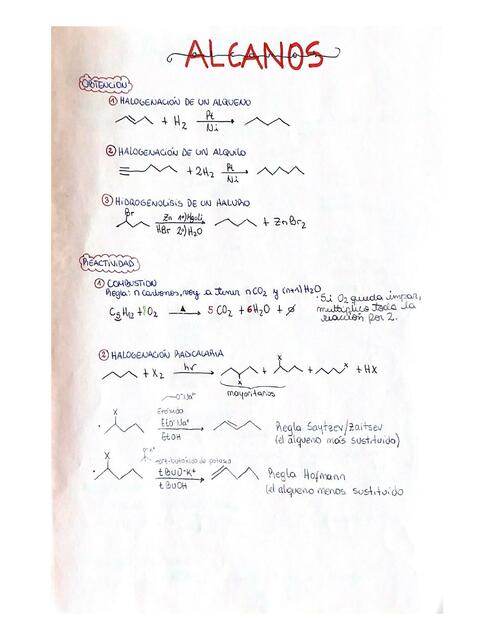 ALCANOS
OBTENCIÓN
① HALOGENACIÓN DE UN ALQUENO
+ H2 Pt Ni
② HALOGENACIÓN DE UN ALQUILO
+ 2H2 Pt Ni
③ HIDROGENOLISIS DE UN HALURO
Br
Zn
HBr 2) H2O
+ ZnBr2
REACTIVIDAD
① COMBUSTION
Regla: n carbonos, voy a tener n CO2 y (n+1) H2O
C5H12 + 8O2 Δ 5 CO2 + 6H2O +
· Si O2 queda impar,
multiplico toda la
reacción por 2.
② HALOGENACIÓN RADICALARIA
+ X2 hν + + X + HX
X X
mayoritarios
O-Na+
X Etóxido
EtO-Na+
EtOH
Regla Saytzev/Zaitsev
(el alqueno más sustituido)
X
tert-butóxido de potasio
tBuO-K+
tBuOH
Regla Hofmann
(el alqueno menos sustituido